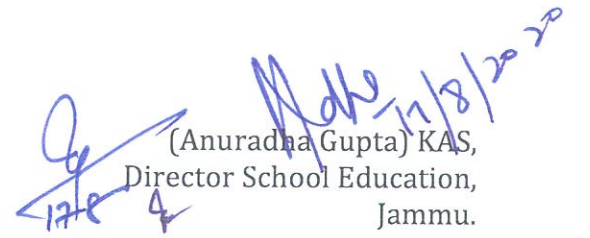 17/8/2020
(Anuradha Gupta) KAS,
Director School Education,
Jammu.
17-8